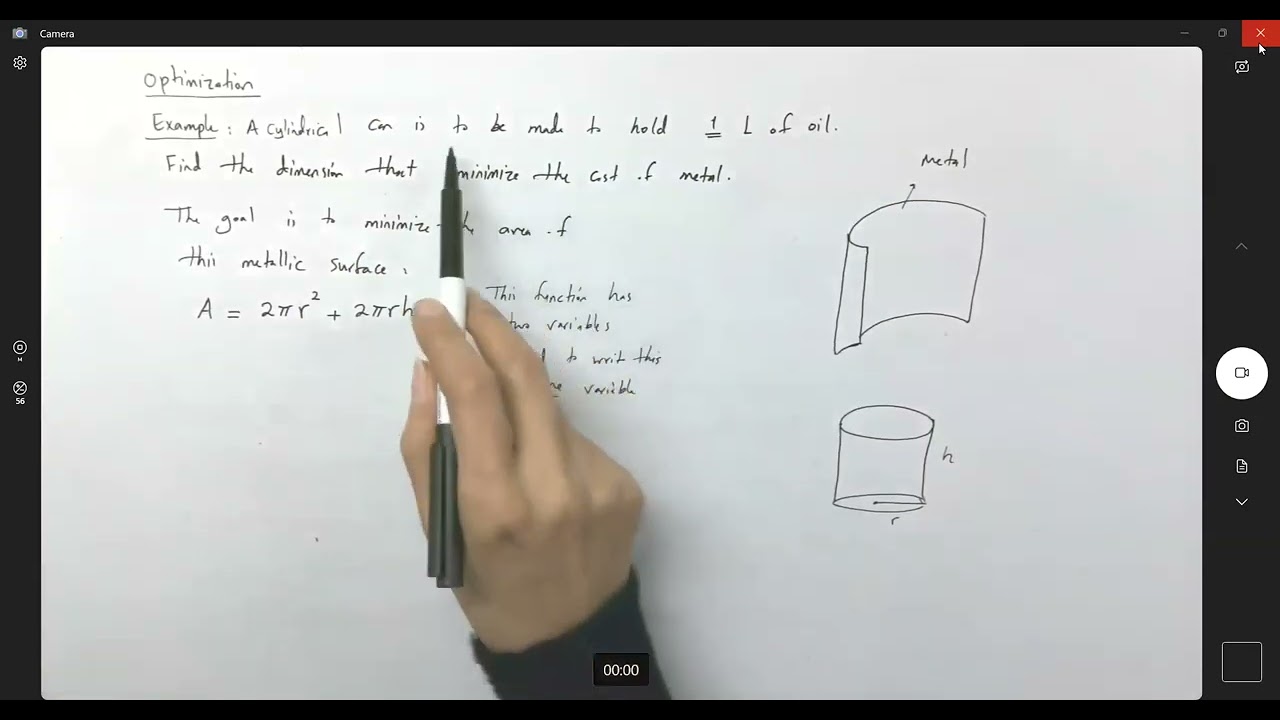 Camera
Optimization
Example: A cylindrical can is to be made to hold 1 L of oil.
Find the dimension that minimize the cost of metal.
The goal is to minimize area of
this metallic surface:
A = 2πr² + 2πrh
This function has
two variables
to writ this
variable
Metal
h
r
56
00:00